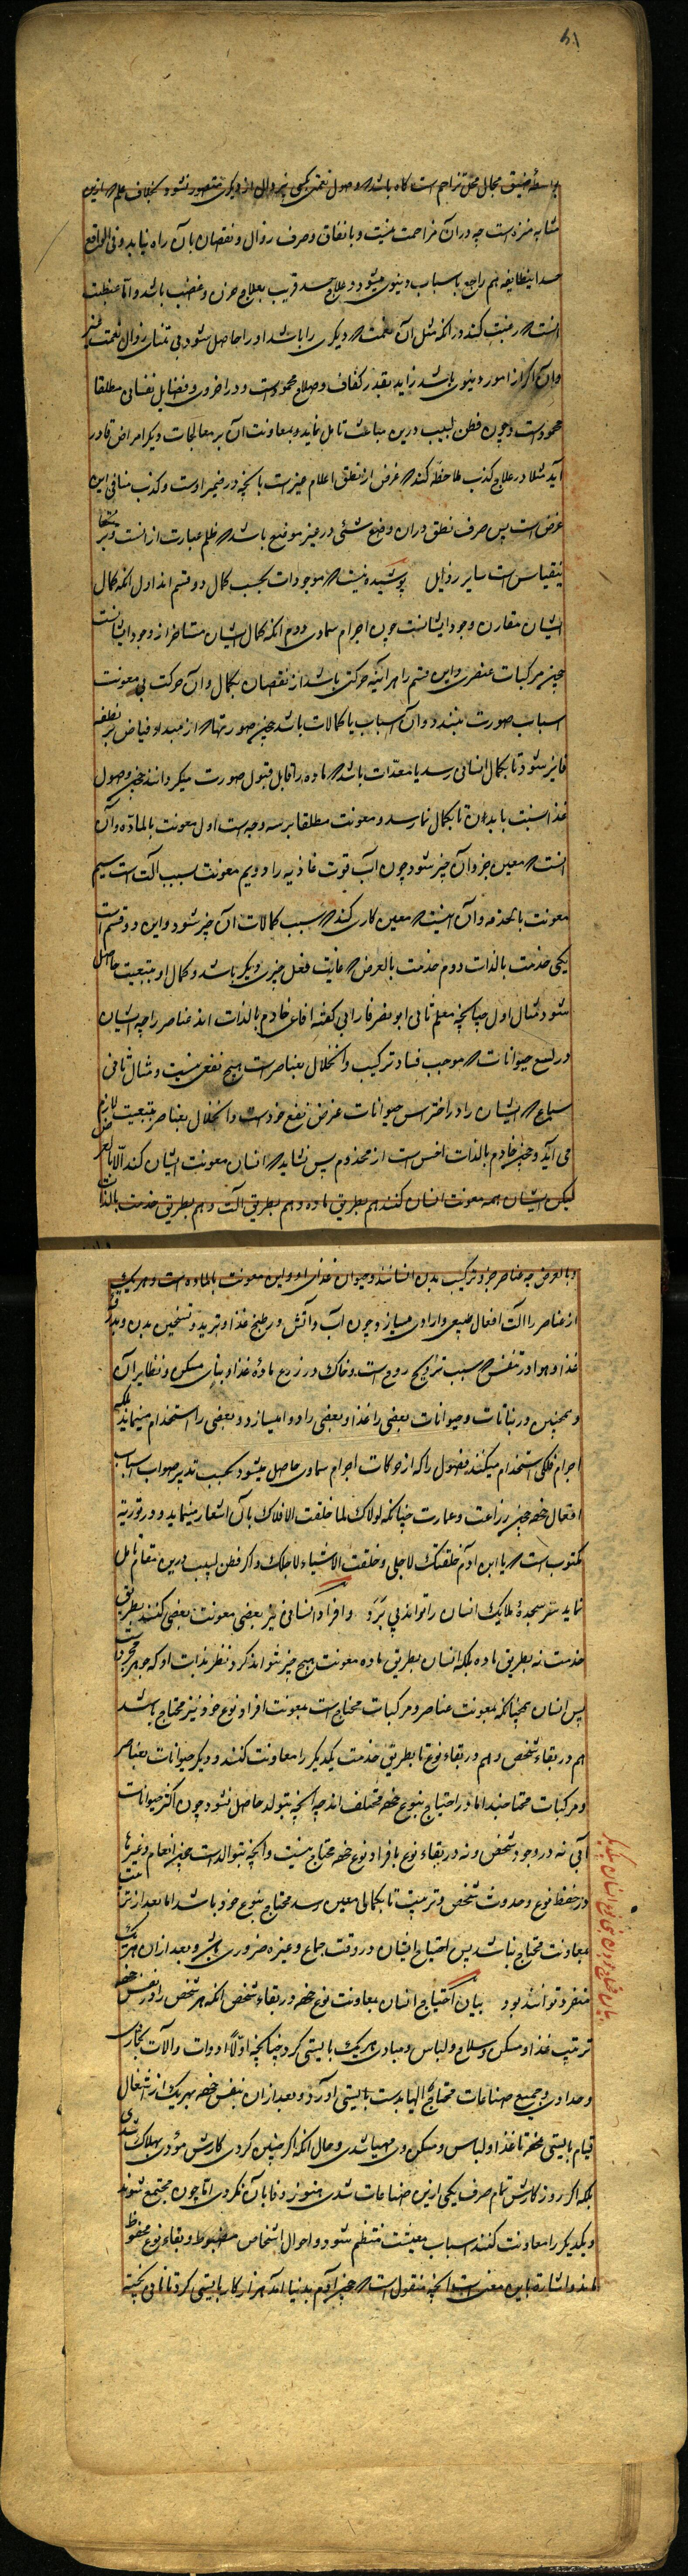 بواسطهٔ ضیق مجال محل تزاحم است گاه باشد که وصول نعمتی بکسی بی زوال از دیگری متصور نشود بخلاف علم که ازین
مشابه منزه است چه در آن مزاحمت نیست و بانفاق و صرف زوال و نقصان بآن راه نیابد و فی الواقع
حسد اینطایفه هم راجع باسباب دنیوی میشود و علاج حسد قریب بعلاج حزن و غضب باشد و اما غبطت
آنست که رغبت کند در آنکه مثل آن نعمت که دیگری را باشد او را حاصل شود بی تمنای زوال نعمت غیر
و آن اگر از امور دنیوی باشد زاید بقدر کفاف و صلاح محمود است و در اخروی و فضایل نفسانی مطلقا
محمود است و چون فطن لبیب درین مباحث تامل نماید و بمعاونت آن بر معالجات دیگر امراض قادر
آید مثلا در علاج کذب ملاحظه کند که غرض از نطق اعلام غیر است بآنچه در ضمیر اوست و کذب منافی این
غرض است پس صرف نطق در آن وضع شئی در غیر موضع باشد که ظلم عبارت از آنست و بر
ینقیاس است سایر رذایل پوشیده نیست که موجودات بحسب کمال دو قسم اند اول آنکه کمال
ایشان مقارن وجود ایشانست چون اجرام سماوی دوم آنکه کمال ایشان متاخر از وجود ایشانست
چون مرکبات عنصری و این قسم را هر آینه حرکتی باشد از نقصان بکمال و آن حرکت بی معونت
اسباب صورت نبندد و آن اسباب یا کمالات باشد چون صورتها که از مبداء فیاض بر نطفه
فایز شود تا بکمال انسانی رسد یا معدات باشد که ماده را قابل قبول صورت میگرداند چون وصول
غذا نسبت بابدان تا بکمال نما رسد و معونت مطلقا بر سه وجه است اول معونت بالماده و آن
آنست که معین جزو آن چیز شود چون آب قوت غاذیه را دویم معونت بسبب آلت است سیم
معونت بالخدمه و آن اینست که معین کاری کند که سبب کمالات آن چیز شود و این دو قسم است
یکی خدمت بالذات دوم خدمت بالعرض که غایت فعل چیزی دیگر باشد و کمال او بتبعیت حاصل
شود مثال اول چنانچه معلم ثانی ابو نصر فارابی گفته افاعی خادم بالذات اند عناصر را چه ایشان
در لسع حیوانات که موجب فساد ترکیب و انحلال بعناصر است هیچ نفعی نیست و مثال ثانی
سباع که ایشان را در افتراس حیوانات غرض نفع خود است و انحلال بعناصر بتبعیت لازم
می آید و چون خادم بالذات اخس است از مخدوم پس نشاید که انسان معونت ایشان کند الا بالعرض
لیکن ایشان همه معونت انسان کنند هم بطریق ماده و هم بطریق آلت و هم بطریق خدمت بالذات
و بالعرض چه عناصر جزو ترکیب بدن انسانند و حیوان غذای او و این معونت بالماده است و هر یک
از عناصر را آلت افعال طبیعی و ارادی میسازد چون آب و آتش در طبخ غذا و تبرید و تسخین بدن و
غذا و هوا در تنفس که سبب ترویح روح است و خاک در زرع مادهٔ غذا و بنای مسکن و نظایر آن
و همچنین در نباتات و حیوانات بعضی را غذا و بعضی را دوا میسازد و بعضی را استخدام مینماید بلکه
اجرام فلکی استخدام میکنند فصول را که از حرکات اجرام سماوی حاصل میشود بحسب تدبیر صواب اسباب
افعال خود چون زراعت و عمارت چنانکه لولاک لما خلقت الافلاک بآن اشعار مینماید و در توریة
مکتوبست که یا ابن آدم خلقتک لاجلی و خلقت الاشیاء لاجلک و اگر فطن لبیب درین مقام تامل
نماید سر سجدهٔ ملایک انسان را تواند پی برد و افراد انسانی نیز بعضی معونت بعضی کنند بطریق
خدمت نه بطریق ماده بلکه انسان بطریق ماده معونت هیچ چیز نتواند کرد نظر بذات او که جوهر مجرد است
پس انسان همچنانکه بمعونت عناصر و مرکبات محتاج است بمعونت افراد نوع خود نیز محتاج باشد
هم در بقاء شخص و هم در بقاء نوع تا بطریق خدمت یکدیگر را معاونت کنند و دیگر حیوانات بعناصر
و مرکبات محتاجند اما در احتیاج بنوع خود مختلف اند چه آنچه بتولد حاصل نشود چون اکثر حیوانات
آبی نه در وجود شخص و نه در بقاء نوع بافراد نوع خود محتاج نیست و آنچه بتوالد است چون انعام و غیرها
در حفظ نوع و حدوث شخص و تربیت تا بکمالی معین رسد محتاج بنوع خود باشد اما بعد از تربیت
بمعاونت محتاج نباشد پس اجتماع ایشان در وقت جماع و غیره ضروری باشد و بعد از آن هر یک
منفرد توانند بود بیان احتیاج انسان بمعاونت نوع خود در بقاء شخص آنکه هر شخص را در نفس خود
ترتیب غذا و مسکن و سلاح و لباس و مبادی هر یک بایستی کرد چنانچه اولاً ادوات و آلات نجاری
و حدادی و جمیع صناعات محتاج الیها بدست بایستی آورد و بعد از آن بنفس خود بهر یک از اشغال
قیام بایستی نمود تا غذا و لباس و مسکن وی مهیا شدی و حال آنکه اگر چنین کردی کارش مؤدی بهلاک شدی
بلکه اگر روزگارش تمام صرف یکی ازین صناعات شدی هنوز وفا بآن نکردی اما چون مجتمع شوند
و یکدیگر را معاونت کنند اسباب معیشت منتظم شود و احوال اشخاص مضبوط و بقاء نوع محفوظ
ماند و اشاره باین معنی است آنچه منقول است که چون آدم بدنیا آمد هزار کار بایستی کرد تا نانی پخته